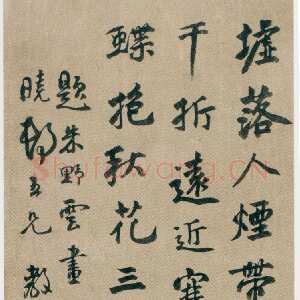 墟落人煙帶
千折遠近寒
蝶抱秋花三
題朱野雲畫
曉 五兄教